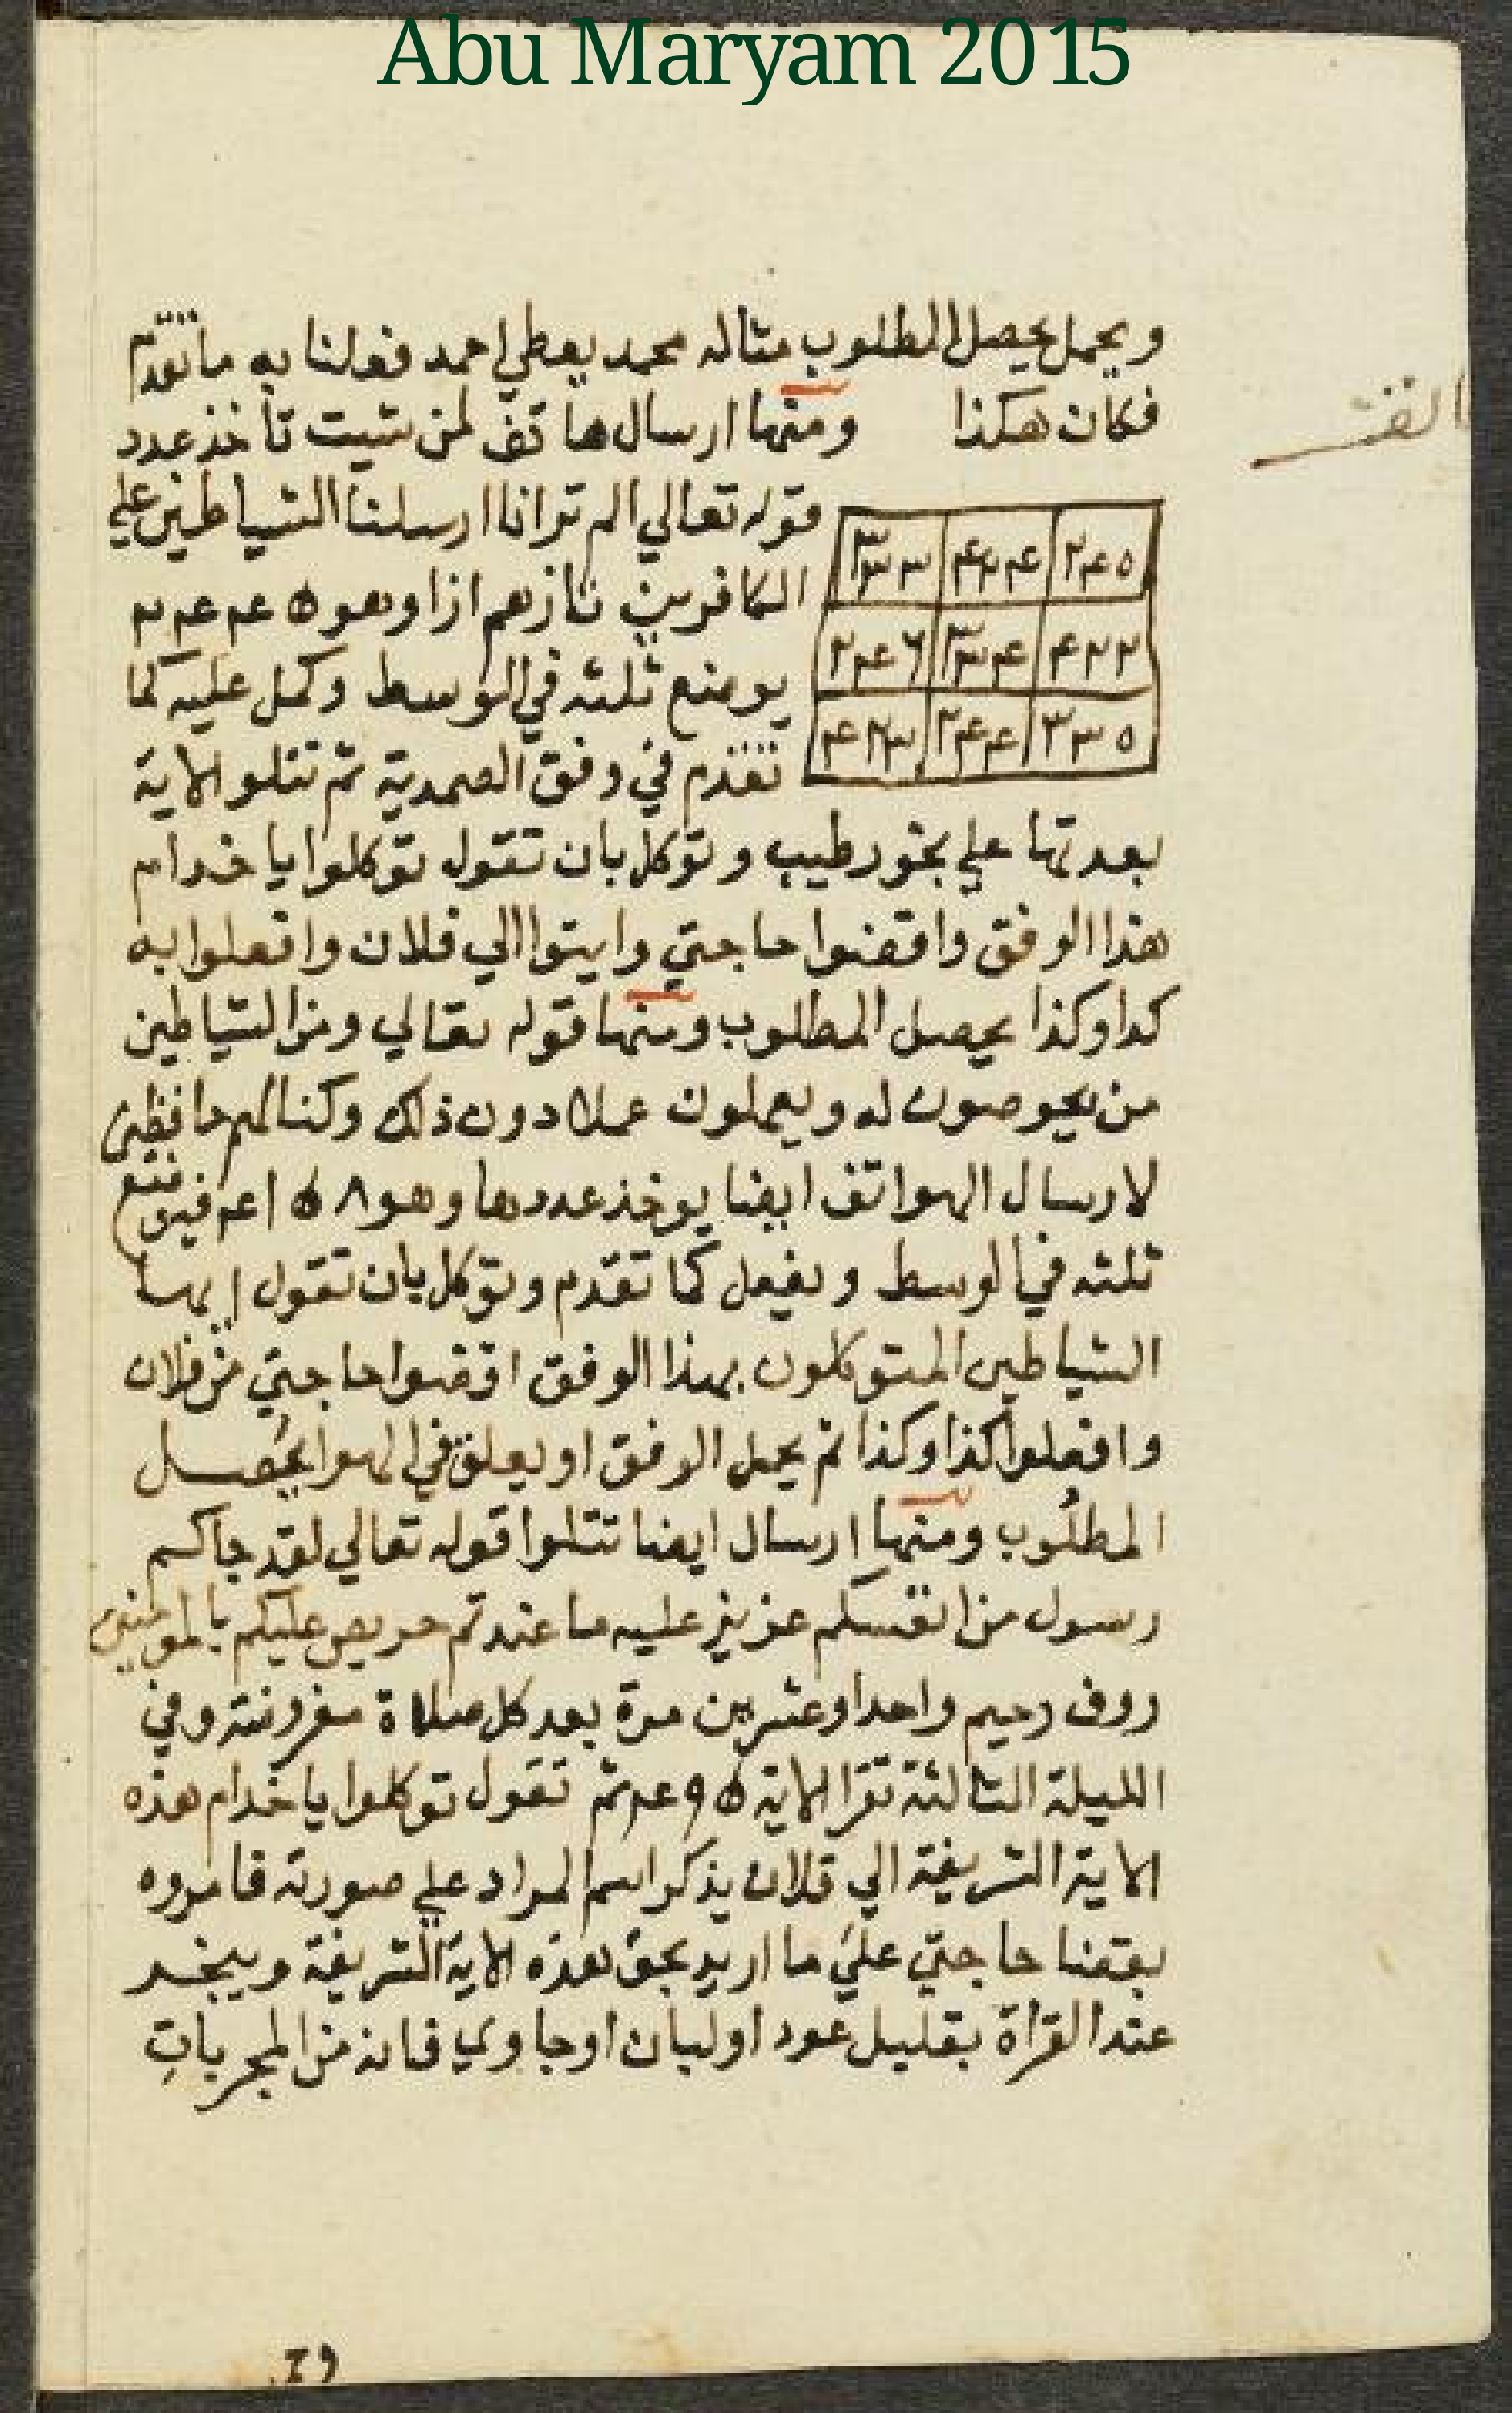 Abu Maryam 2015
ويحمل يحصل المطلوب مثاله محمد يعطي احمد فعلنا به ما تقدم
فكان هكذا ومنها ارسال هاتف لمن شيت تاخذ عدد
قوله تعالي الم تر انا ارسلنا الشياطين علي
الكافرين تازهم ازا وهو
يوضع ثلثه في الوسط وكمل عليه كما
تقدم في وفق الصمدية ثم تتلو الاية
بعدتها علي بخور طيب وتوكل بان تقول توكلوا يا خدام
هذا الوفق واقضوا حاجتي وايتوا الي فلان وافعلوا به
كدا وكذا يحصل المطلوب ومنها قوله تعالي ومن الشياطين
من يغوصون له ويعملون عملا دون ذلك وكنا لهم حافظين
لارسال الهواتف ايضا يوخذ عددها وهو فيوضع
ثلثه في الوسط ويفعل كما تقدم وتوكل بان تقول ايها
الشياطين المتوكلون بهذا الوفق اقضوا حاجتي من فلان
وافعلوا كذا وكذا ثم يحمل الوفق او يعلق في الهوا يحصل
المطلوب ومنها ارسال ايضا تتلوا قوله تعالي لقد جاكم
رسول من انفسكم عزيز عليه ما عندتم حريص عليكم بالمومنين
روف رحيم واحدا وعشرين مرة بعد كل صلاة مفروضة وفي
الليلة الثالثة تقرا الاية ثم تقول توكلوا يا خدام هذه
الاية الشريفة الي فلان يذكر اسم المراد علي صورته فامروه
بقضا حاجتي علي ما اريد بحق هذه الاية الشريفة ويبخر
عند القراة بقليل عود او لبان او جاوي فانه من المجربات